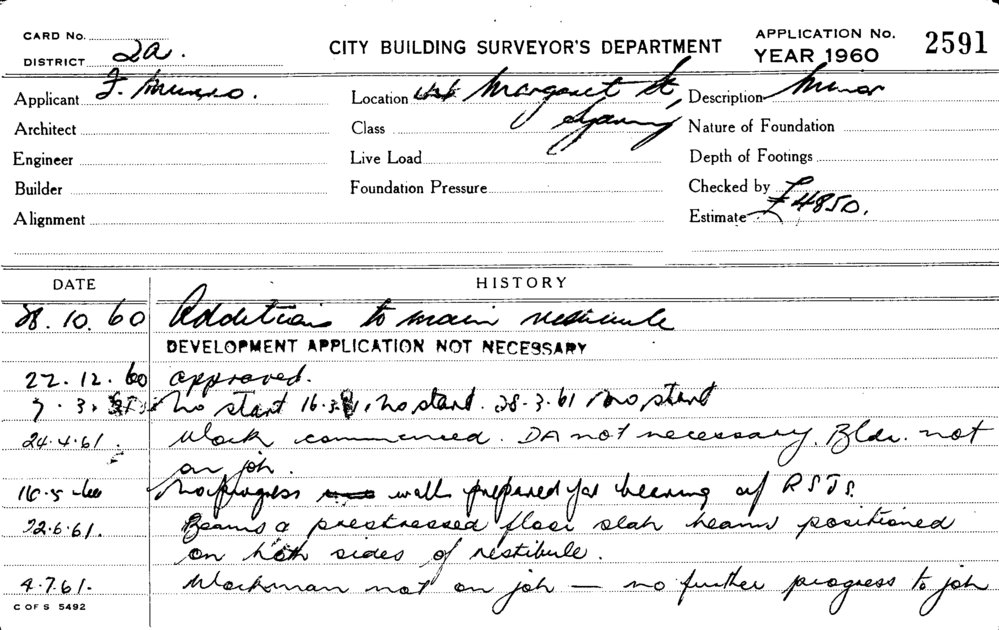 CARD No.
DISTRICT 2a.
CITY BUILDING SURVEYOR'S DEPARTMENT
APPLICATION No.
YEAR 1960
2591
Applicant F. Munro.
Location Margaret St, Sydney
Description Minor
Architect
Class
Nature of Foundation
Engineer
Live Load
Depth of Footings
Builder
Foundation Pressure
Checked by
Alignment
Estimate £4850.
DATE HISTORY
28.10.60 Additions to main vestibule
DEVELOPMENT APPLICATION NOT NECESSARY
22.12.60 approved.
7.3. No start 16.3. no start. 28.3.61 no start
24.4.61. Work commenced. DA not necessary. Bldr. not
on job.
16.5.60 No progress walls prepared for bearing of RSJS.
22.6.61. Beams & prestressed floor slab beams positioned
on both sides of vestibule.
4.7.61. Workman not on job — no further progress to job
C OF S 5492